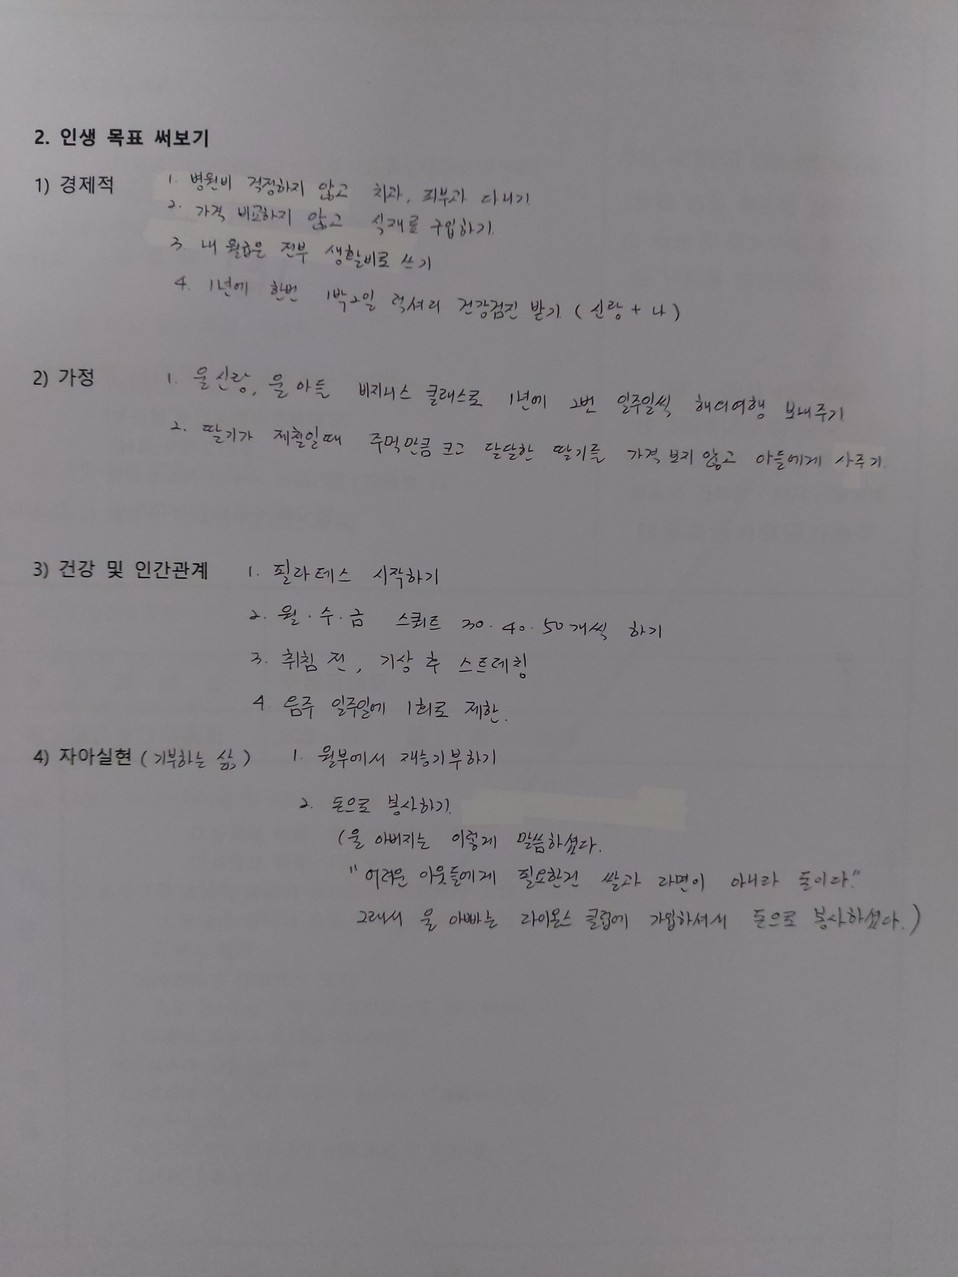 2. 인생 목표 써보기
1) 경제적 1. 병원비 걱정하지 않고 치과, 피부과 다니기
2. 가격 비교하지 않고 식재료 구입하기.
3. 내 월급은 전부 생활비로 쓰기
4. 1년에 한번 1박2일 럭셔리 건강검진 받기 (신랑 + 나)
2) 가정 1. 울신랑, 울 아들 비지니스 클래스로 1년에 2번 일주일씩 해외여행 보내주기
2. 딸기가 제철일때 주먹만큼 크고 달달한 딸기를 가격 보지 않고 아들에게 사주기.
3) 건강 및 인간관계 1. 필라테스 시작하기
2. 월·수·금 스쿼트 30·40·50개씩 하기
3. 취침 전, 기상 후 스트레칭
4. 음주 일주일에 1회로 제한.
4) 자아실현 (기부하는 삶) 1. 월부에서 재능기부하기
2. 돈으로 봉사하기.
(울 아버지는 이렇게 말씀하셨다.
"어려운 이웃들에게 필요한건 쌀과 라면이 아니라 돈이다."
그래서 울 아빠는 라이온스 클럽에 가입하셔서 돈으로 봉사하셨다.)